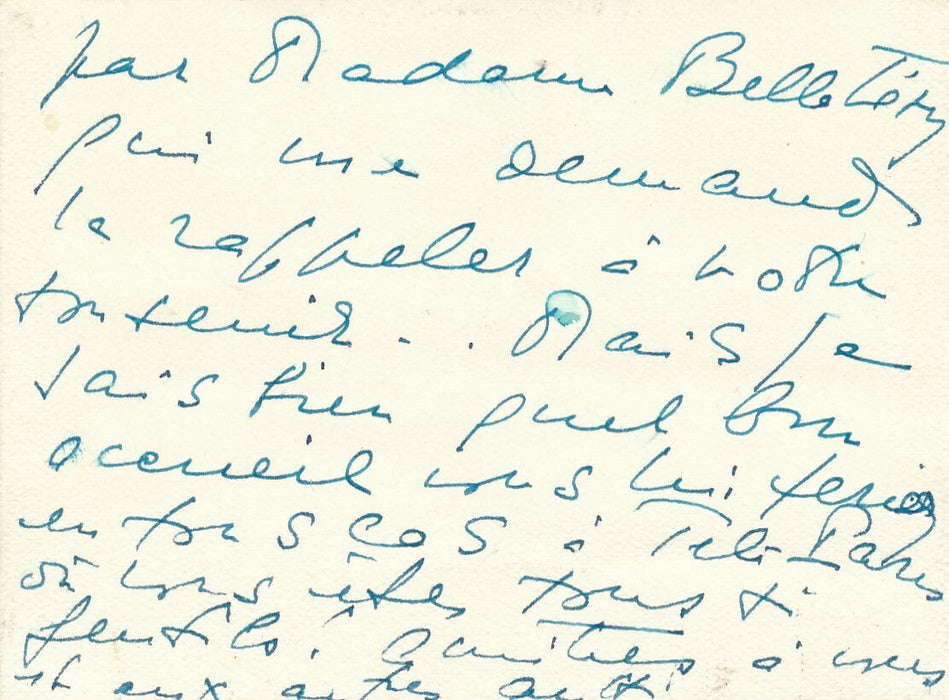 par Madame Belle Téry
qui me demande
la rappeler à votre
souvenir.. Mais je
sais bien quel bon
accueil vous lui feriez
en tous cas à Télé-Paris
où vous êtes tous si
gentils! Amitiés à vous
et aux autres aussi